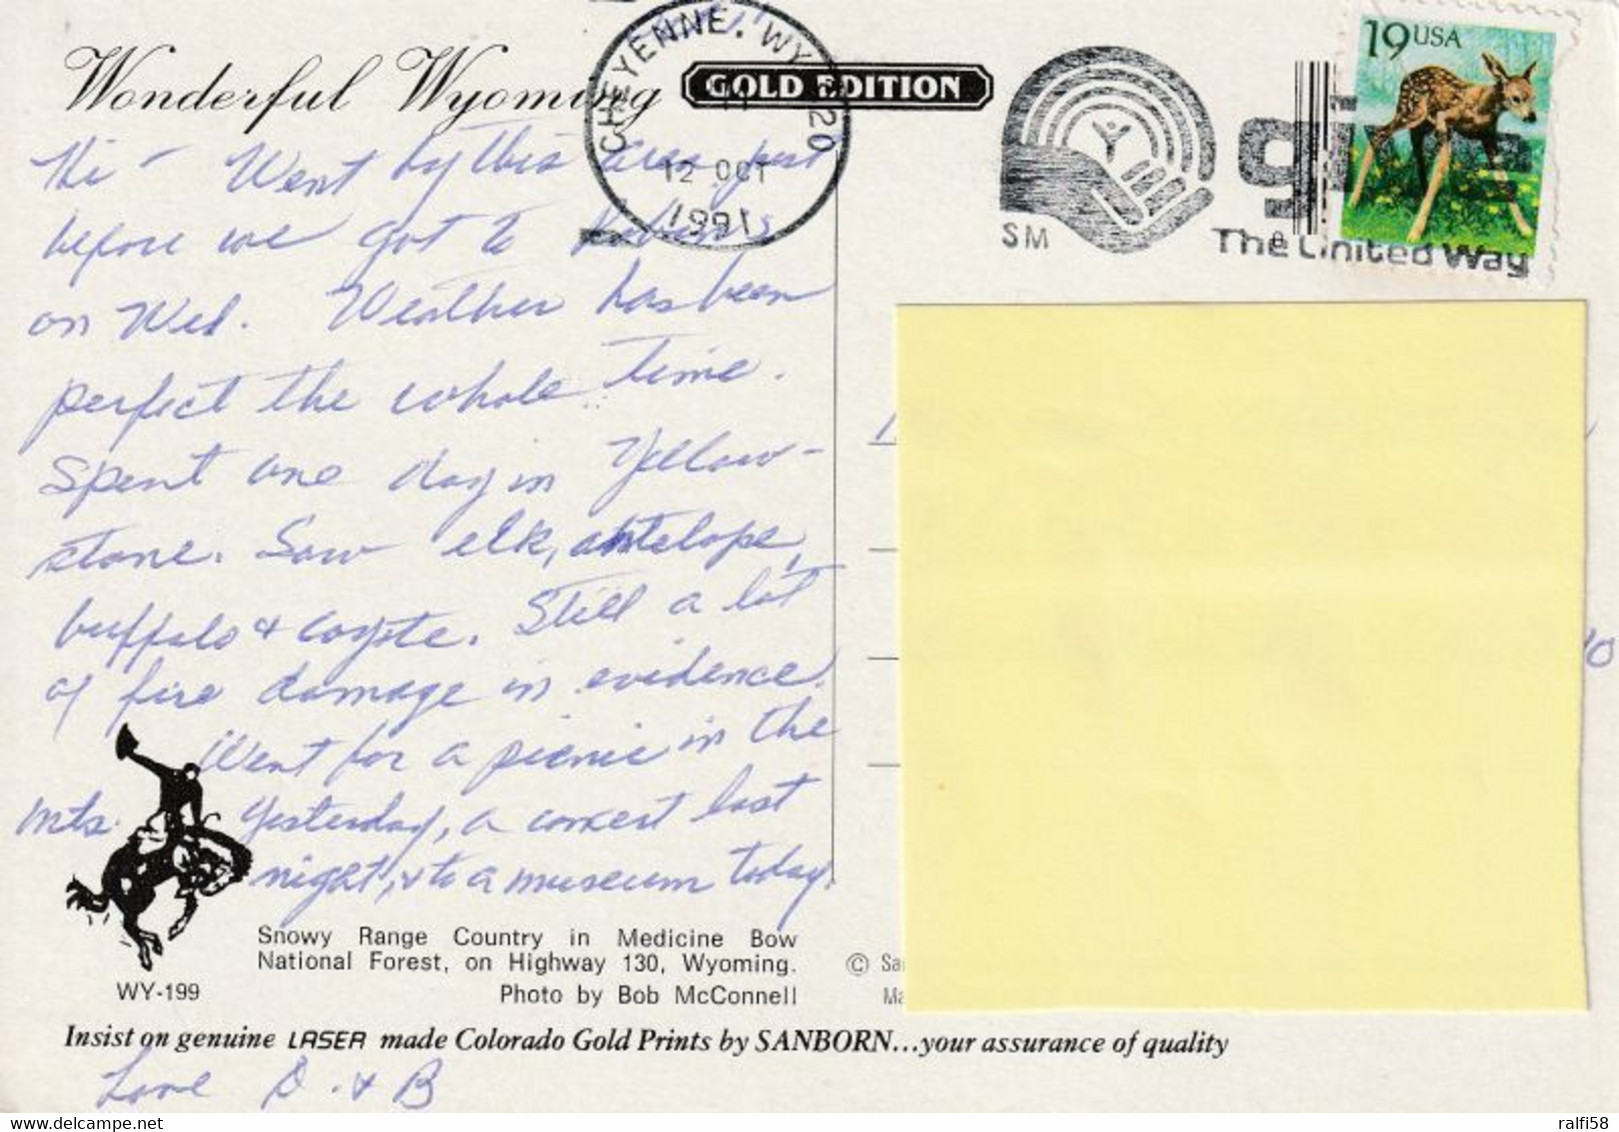 Wonderful Wyoming
GOLD EDITION
CHEYENNE, WY 820
12 OCT
1991
SM
The United Way
19 USA
Hi - Went by this area just
before we got to
on Wed. Weather has been
perfect the whole time.
Spent one day in Yellow-
stone. Saw elk, antelope,
buffalo & coyote. Still a lot
of fire damage in evidence.
Went for a picnic in the
mts. yesterday, a concert last
night, & to a museum today.
Snowy Range Country in Medicine Bow
National Forest, on Highway 130, Wyoming.
WY-199
Photo by Bob McConnell
© Sa
Ma
Insist on genuine LASER made Colorado Gold Prints by SANBORN...your assurance of quality
Love D. & B
delcampe.net
ralfi58